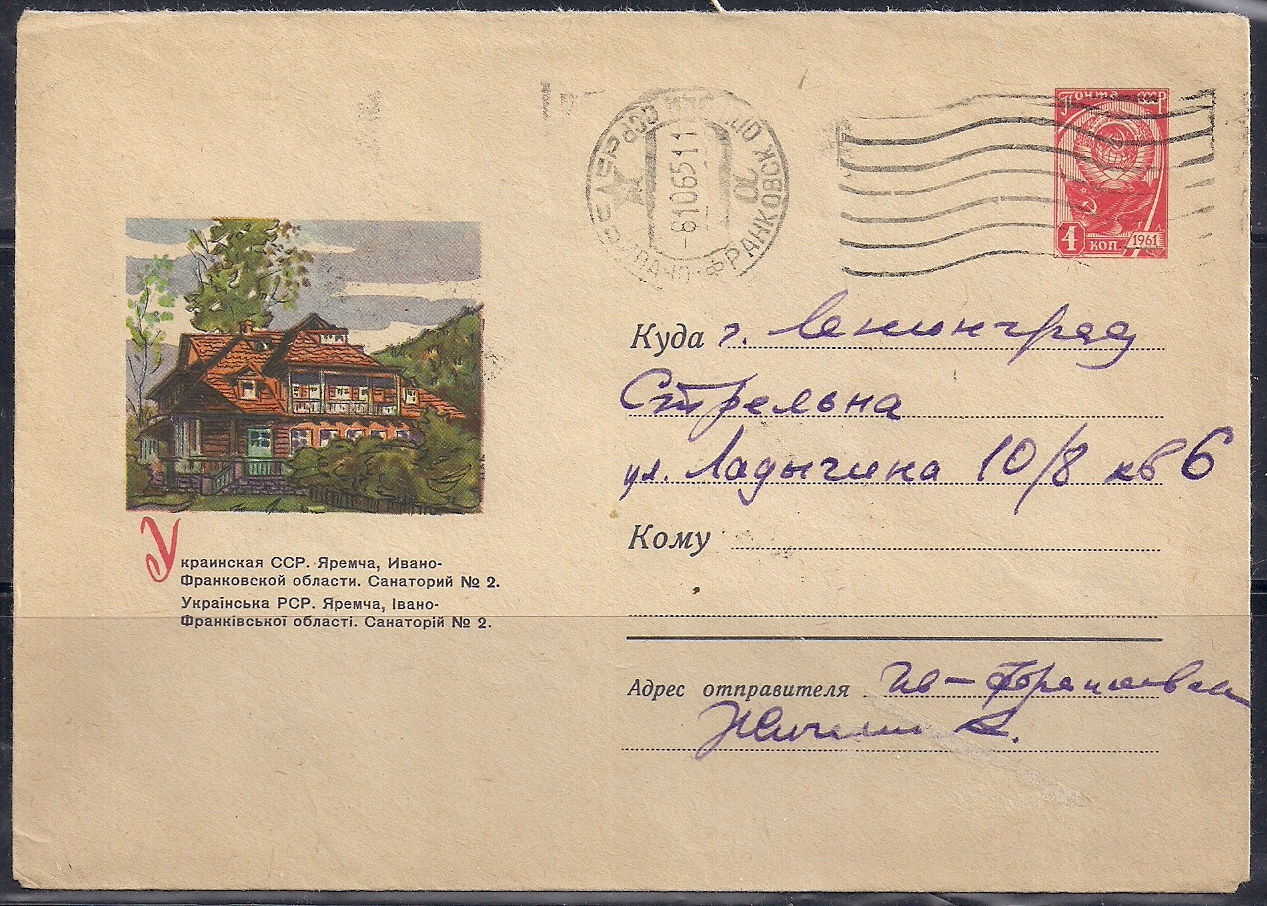 Почта СССР
4 коп. 1961
УССР СССР
-6106511
ИВАНО-ФРАНКОВСК ОП
Куда г. Ленинград
Стрельна
ул. Ладыгина 10/8 кв 6
Украинская ССР. Яремча, Ивано-
Франковской области. Санаторий № 2.
Українська РСР. Яремча, Івано-
Франківської області. Санаторій № 2.
Кому
Адрес отправителя Ив-Франковск